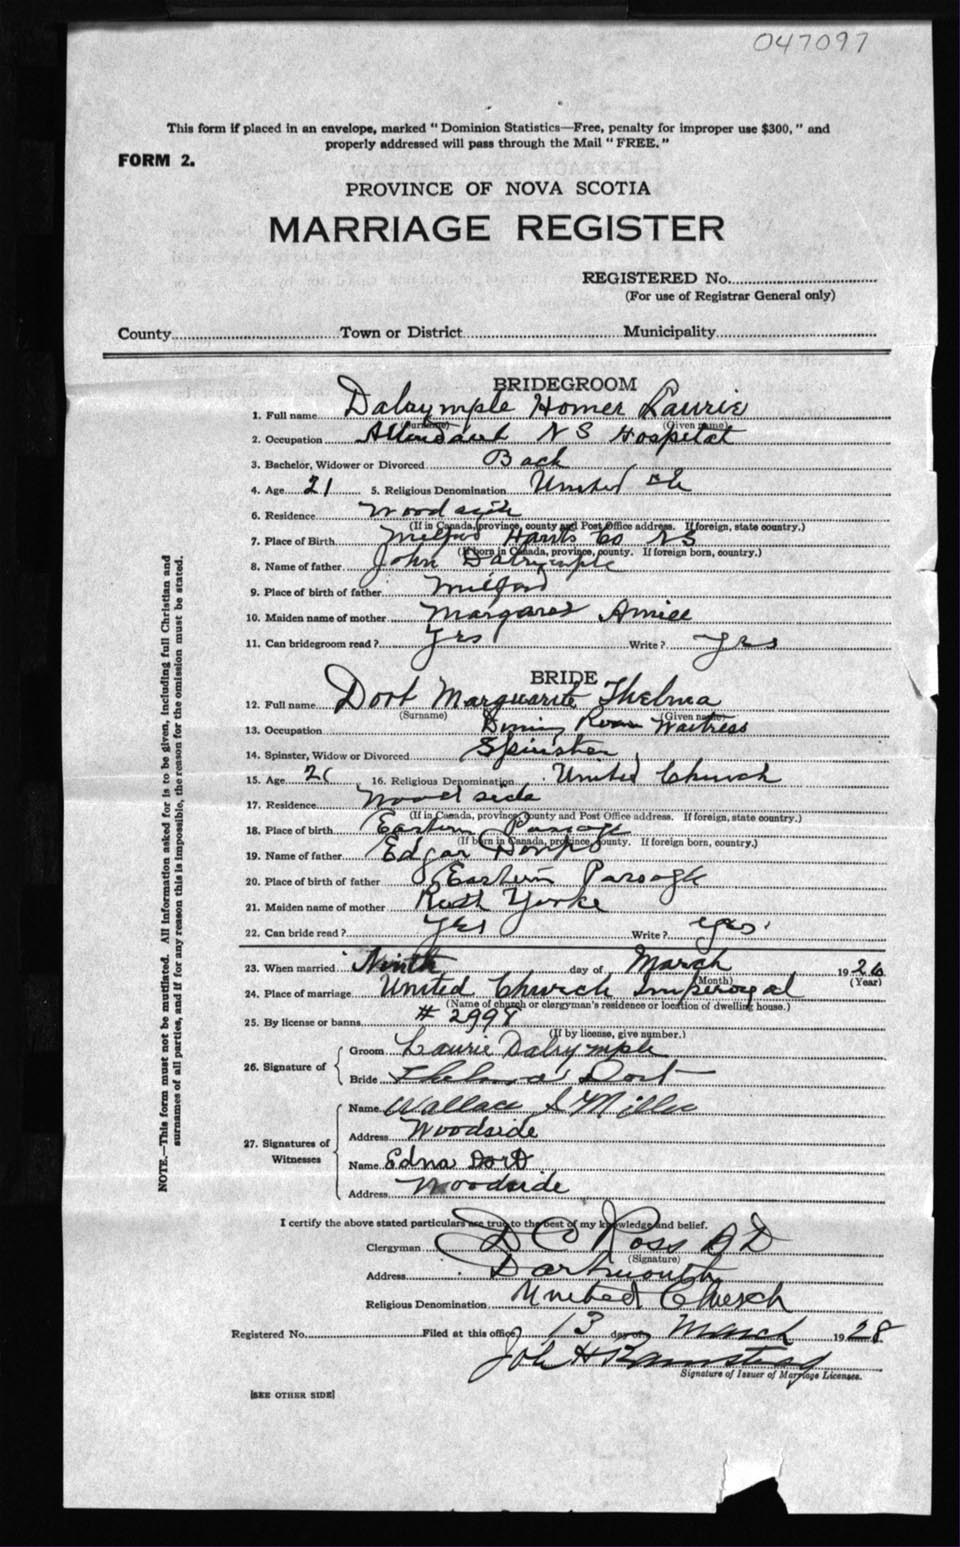 047097
This form if placed in an envelope, marked "Dominion Statistics—Free, penalty for improper use $300," and
properly addressed will pass through the Mail "FREE."
FORM 2.
PROVINCE OF NOVA SCOTIA
MARRIAGE REGISTER
REGISTERED No.
(For use of Registrar General only)
County Town or District Municipality
BRIDEGROOM
1. Full name Dalrymple Homer Laurie
(Surname) (Given name)
2. Occupation Attendant N S Hospital
3. Bachelor, Widower or Divorced Bach
4. Age 21 5. Religious Denomination United Ch
6. Residence Woodside
(If in Canada, province, county and Post Office address. If foreign, state country.)
7. Place of Birth Milford Hants Co N S
(If born in Canada, province, county. If foreign born, country.)
8. Name of father John Dalrymple
9. Place of birth of father Milford
10. Maiden name of mother Margaret
11. Can bridegroom read? Yes Write? yes
BRIDE
12. Full name Dort Marguerite Thelma
(Surname) (Given name)
13. Occupation Dining Room Waitress
14. Spinster, Widow or Divorced Spinster
15. Age 16. Religious Denomination United Church
17. Residence Woodside
(If in Canada, province, county and Post Office address. If foreign, state country.)
18. Place of birth Eastern Passage
(If born in Canada, province, county. If foreign born, country.)
19. Name of father Edgar
20. Place of birth of father Eastern Passage
21. Maiden name of mother Ruth Yorke
22. Can bride read? Yes Write? yes
23. When married Ninth day of March 19
(Month) (Year)
24. Place of marriage United Church Imperoyal
(Name of church or clergyman's residence or location of dwelling house.)
25. By license or banns # 2998
(If by license, give number.)
26. Signature of Groom Laurie Dalrymple
Bride Thelma Dort
27. Signatures of Witnesses Name Wallace
Address Woodside
Name Edna Dort
Address Woodside
I certify the above stated particulars are true to the best of my knowledge and belief.
Clergyman Ross D D
(Signature)
Address Dartmouth
Religious Denomination United Church
Registered No. Filed at this office 13 day of March 1928
Signature of Issuer of Marriage Licenses.
[SEE OTHER SIDE]
NOTE.—This form must not be mutilated. All information asked for is to be given, including full Christian and
surnames of all parties, and if for any reason this is impossible, the reason for the omission must be stated.